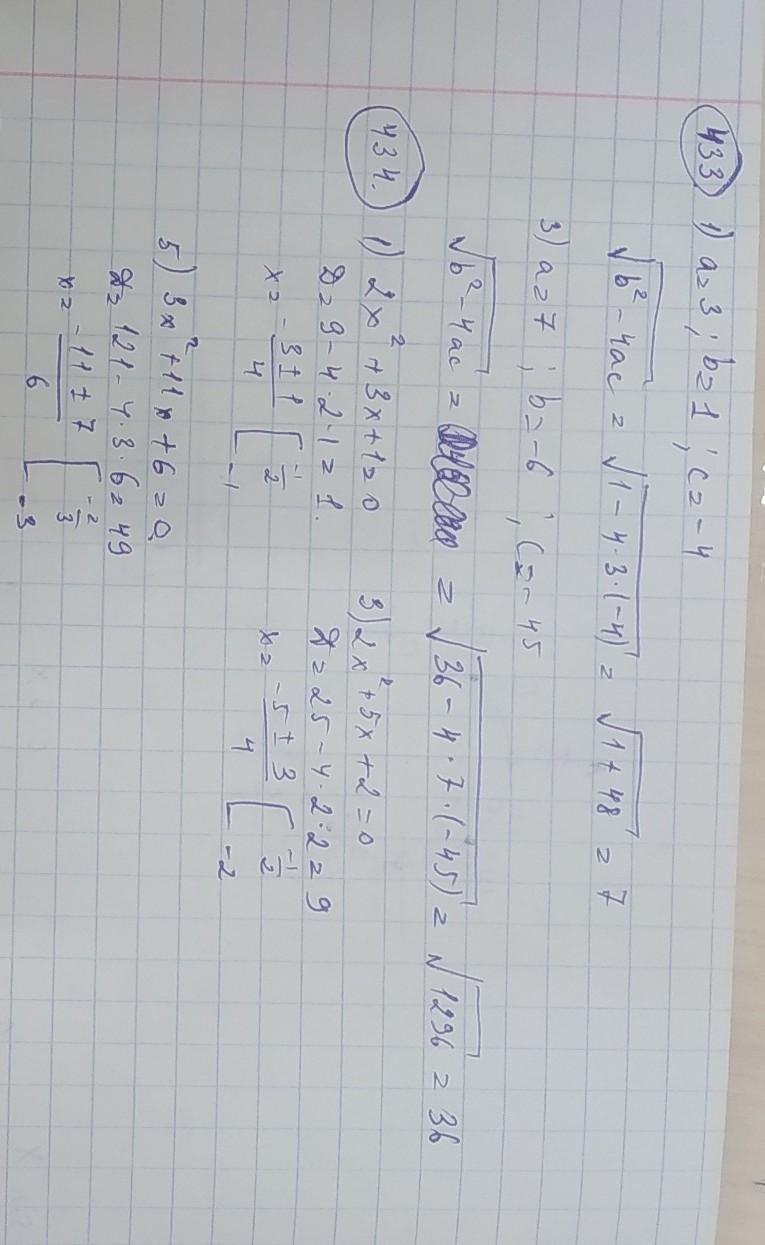 433 1) a=3; b=1; c=-4
√b²-4ac = √1-4·3·(-4) = √1+48 = 7
3) a=7; b=-6; c=-45
√b²-4ac = = √36-4·7·(-45) = √1296 = 36
434. 1) 2x²+3x+1=0
D=9-4·2·1=1.
x= -3±1/4 [ -1/2
-1
3) 2x²+5x+2=0
D=25-4·2·2=9
x= -5±3/4 [ -1/2
-2
5) 3x²+11x+6=0
D=121-4·3·6=49
x= -11±7/6 [ -2/3
-3